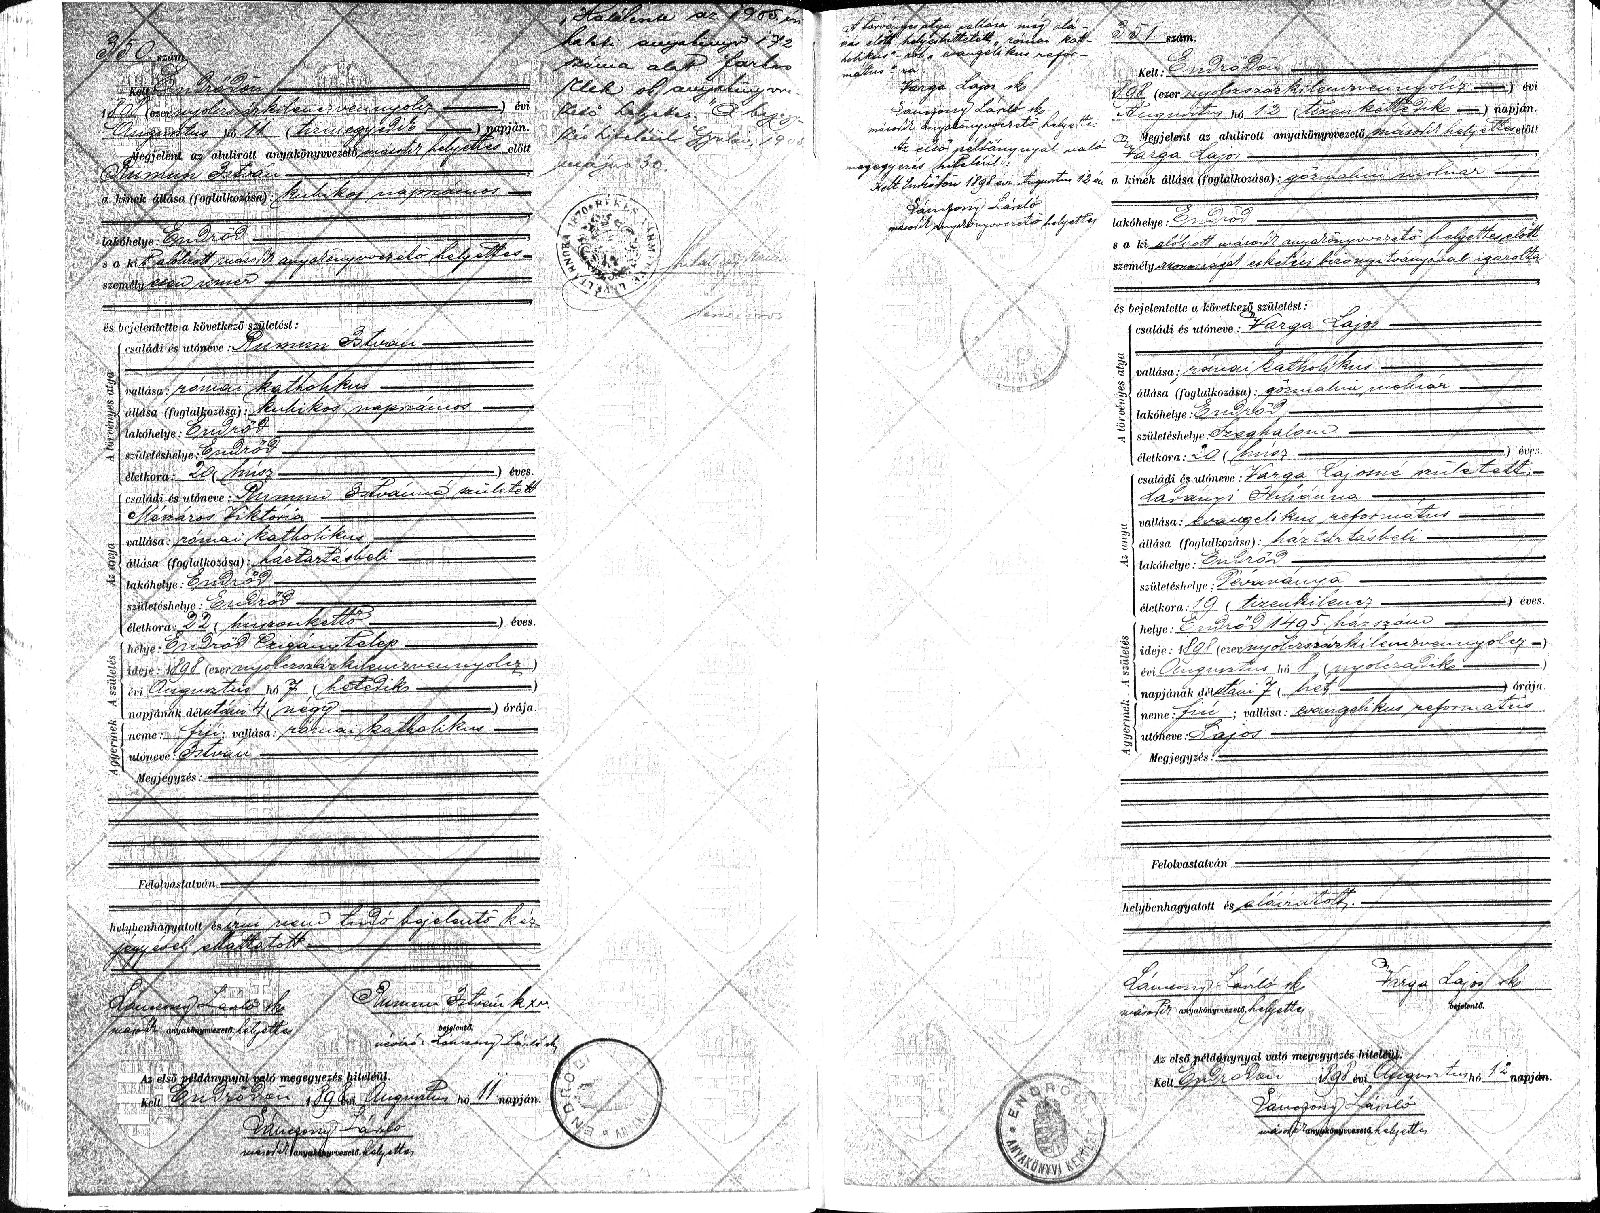 350 szám.
Kelt: Endrődön
1898 (ezernyolcszázkilencvennyolcz) évi
Augusztus hó 11 (tizenegyedik) napján.
Megjelent az alulirott anyakönyvvezető másodr helyettes előtt
István
a kinek állása (foglalkozása): kubikos napszámos
lakóhelye: Endrőd
s a kit alulirott másodr anyakönyvvezető helyettes
személyesen ismer
és bejelentette a következő születést:
A törvényes atyja
családi és utóneve: István
vallása: római katholikus
állása (foglalkozása): kubikos napszámos
lakóhelye: Endrőd
születéshelye: Endrőd
életkora: 20 (húsz) éves.
Az anya
családi és utóneve: Istvánné született
Mészáros Viktória
vallása: római katholikus
állása (foglalkozása): háztartásbeli
lakóhelye: Endrőd
születéshelye: Endrőd
életkora: 22 (huszonkettő) éves.
A születés
helye: Endrőd Czigány telep
ideje: 1898 (ezernyolcszázkilencvennyolcz)
évi Augusztus hó 7 (hetedik)
napjának délutáni 4 (négy) órája.
A gyermek
neme: fiú; vallása: római katholikus
utóneve: István
Megjegyzés:
Felolvastatván
helybenhagyatott és irni nem tudó bejelentő kéz-
jegyével elláttatott.
Lánczony László sk
másodr anyakönyvvezető helyettes
István kx v
bejelentő.
névíró: Lánczony László sk
Az első példánynyal való megegyezés hiteléül.
Kelt Endrődön 1898 évi Augusztus hó 11 napján.
Lánczony László
másodr anyakönyvvezető helyettes
Halálona az 1905 évi
halotti anyakönyv 172
száma alatt
anyakönyvve-
zető helyettes. A bejegy-
zés hiteléül Gyulán, 190
május 30.
BÉKÉS VÁRM
ENDRŐD
A törvényes atya vallása még alá-
irás előtt helyesbittetett, római kath-
olikus"-ról, evangélikus refor-
mátus"-ra
Varga Lajos sk
Lánczony László sk
másodr anyakönyvvezető helyettes.
Az első példánynyal való
megegyezés hiteléül:
Kelt Endrődön 1898 évi Augusztus 12 én
Lánczony László
másodr anyakönyvvezető helyettes
351 szám.
Kelt: Endrődön
1898 (ezernyolcszázkilencvennyolcz) évi
Augusztus hó 12 (tizenkettedik) napján.
Megjelent az alulirott anyakönyvvezető másodr helyettes előtt
Varga Lajos
a kinek állása (foglalkozása): gőzmalmi molnár
lakóhelye: Endrőd
s a ki előbbi másodr anyakönyvvezető helyettes előtt
személyazonosságát esketési bizonyitványával igazolta
és bejelentette a következő születést:
A törvényes atyja
családi és utóneve: Varga Lajos
vallása: római katholikus
állása (foglalkozása): gőzmalmi molnár
lakóhelye: Endrőd
születéshelye: Szeghalom
életkora: 20 (húsz) éves.
Az anya
családi és utóneve: Varga Lajosné született
Juliánna
vallása: evangelikus református
állása (foglalkozása): háztartásbeli
lakóhelye: Endrőd
születéshelye: Dévaványa
életkora: 19 (tizenkilencz) éves.
A születés
helye: Endrőd 1495 házszám
ideje: 1898 (ezernyolcszázkilencvennyolcz)
évi Augusztus hó 8 (nyolczadik)
napjának délutáni 7 (hét) órája.
A gyermek
neme: fiú; vallása: evangelikus református
utóneve: Lajos
Megjegyzés:
Felolvastatván
helybenhagyatott és aláiratott.
Lánczony László sk
másodr anyakönyvvezető helyettes
Varga Lajos sk
bejelentő.
Az első példánynyal való megegyezés hiteléül.
Kelt Endrődön 1898 évi Augusztus hó 12 napján.
Lánczony László
másodr anyakönyvvezető helyettes
ENDRŐD
ANYAKÖNYVI KERÜLET